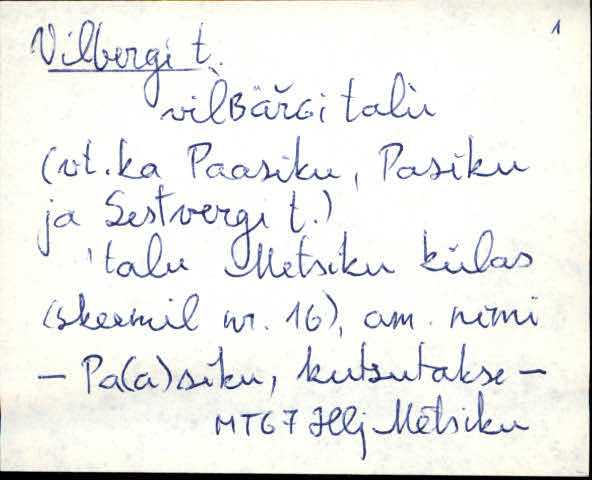 1
Vilbergi t.
vìlʙäřɢi talù
(vt. ka Paasiku, Pasiku
ja Sestvergi t.)
'talu Metsiku külas
(skeemil nr. 16), am. nimi
– Pa(a)siku, kutsutakse –
MT67 Hlj Metsiku